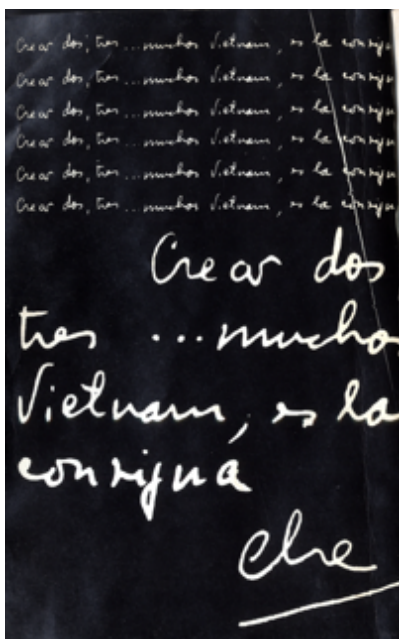 Crear dos, tres ... muchos Vietnam, es la consign
Crear dos, tres ... muchos Vietnam, es la consign
Crear dos, tres ... muchos Vietnam, es la consign
Crear dos, tres ... muchos Vietnam, es la consign
Crear dos, tres ... muchos Vietnam, es la consign
Crear dos, tres ... muchos Vietnam, es la consign
Crear dos
tres ... mucho
Vietnam, es la
consigna
Che